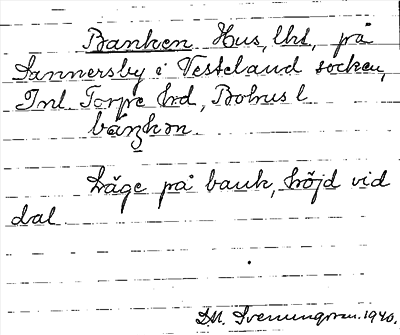 Banken Hus, lht, på
Sannersby i Vesteland socken,
Inl. Torpe hrd, Bohus l
báŋkən
Läge på bank, höjd vid
dal
D.N. Svenungsson. 1940.